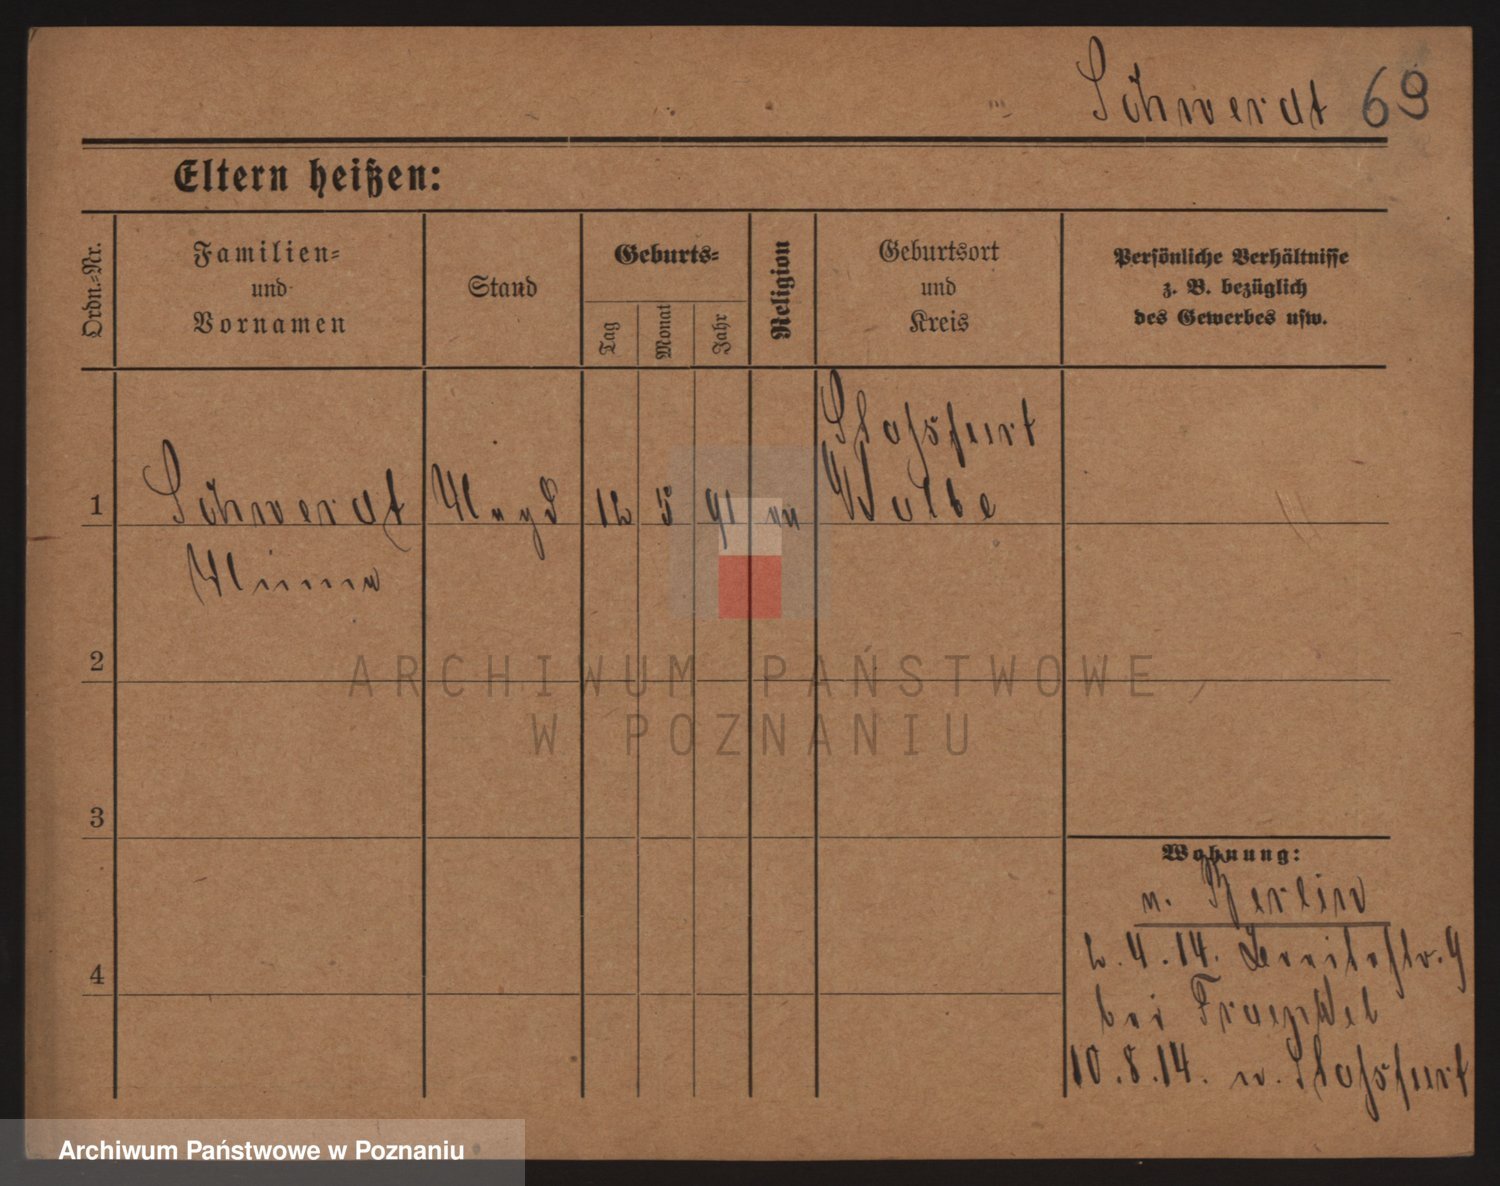 Schwerdt 69
Eltern heißen:
Ordn.-Nr.
Familien-
und
Vornamen
Stand
Geburts-
Tag
Monat
Jahr
Religion
Geburtsort
und
Kreis
Persönliche Verhältnisse
z. B. bezüglich
des Gewerbes usw.
1
Schwerdt
Minna
Magd
12
5
91
Stassfurt
Kalbe
2
3
4
Wohnung:
n. Berlin
2.4.14. Breitestr. 9
bei Fraenkel
10.8.14. n. Stassfurt
ARCHIWUM PAŃSTWOWE
W POZNANIU
Archiwum Państwowe w Poznaniu